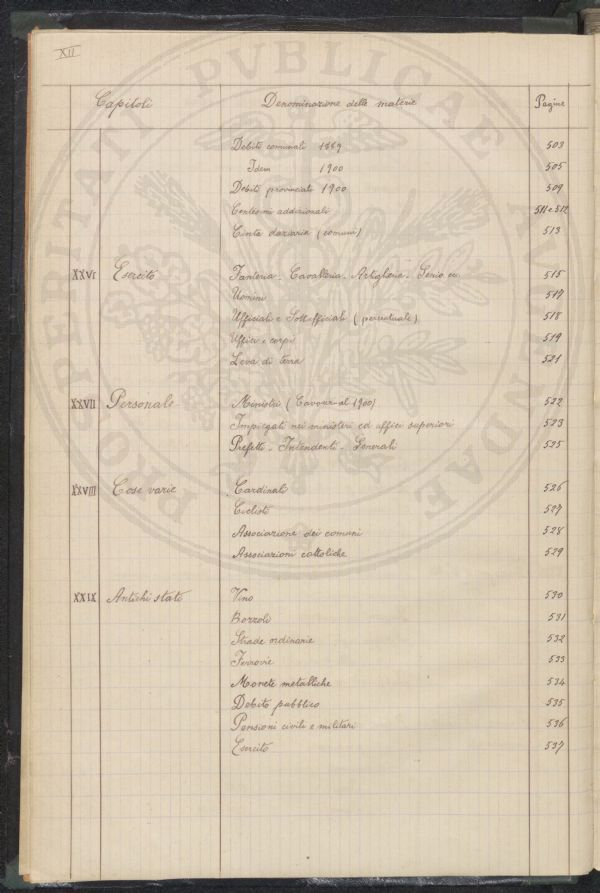 XII
Capitoli Denominazione delle materie Pagine
Debiti comunali 1889 503
Idem 1900 505
Debiti provinciali 1900 509
Centesimi addizionali 511 e 512
Cinta daziaria (comuni) 513
XXVI Esercito Fanteria - Cavalleria - Artiglieria - Genio ecc. 515
Uomini 517
Ufficiali e Sott-ufficiali (percentuali) 518
Uffici e corpi 519
Leva di terra 521
XXVII Personale Ministri (Cavour al 1900) 522
Impiegati nei ministeri ed uffici superiori 523
Prefetti - Intendenti - Generali 525
XXVIII Cose varie Cardinali 526
Ciclisti 527
Associazione dei comuni 528
Associazioni cattoliche 529
XXIX Antichi stati Vino 530
Bozzoli 531
Strade ordinarie 532
Ferrovie 533
Monete metalliche 534
Debito pubblico 535
Pensioni civili e militari 536
Esercito 537
PROSPERITATI PVBLICAE AVGENDAE